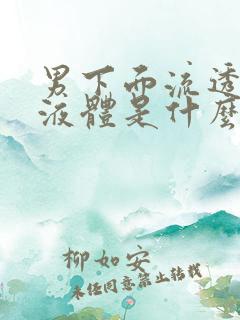 男下面流透
液體是什麼
柳如安
未经同意禁止转载